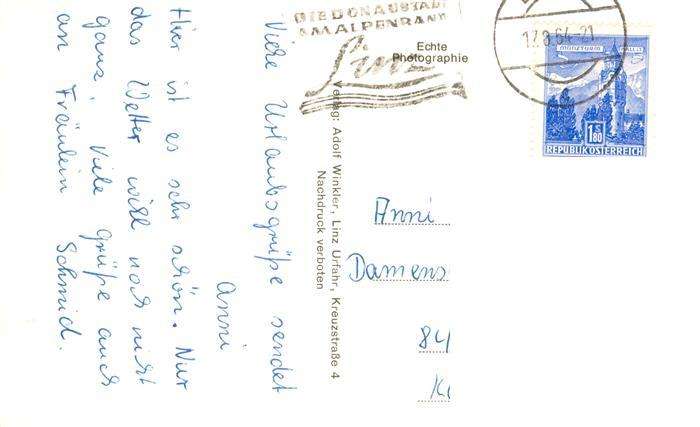 Viele Urlaubsgrüße sendet
Anni
Hier ist es sehr schön. Nur
das Wetter will noch nicht
ganz. Viele Grüße auch
an Fräulein Schmid.
DIE DONAUSTADT
AM ALPENRAND
Linz
Echte
Photographie
Verlag: Adolf Winkler, Linz Urfahr, Kreuzstraße 4
Nachdruck verboten
17.8.64-21
MÜNZTURM HALL I.T.
S
1.80
REPUBLIK ÖSTERREICH
Anni
Damens
84
Ki